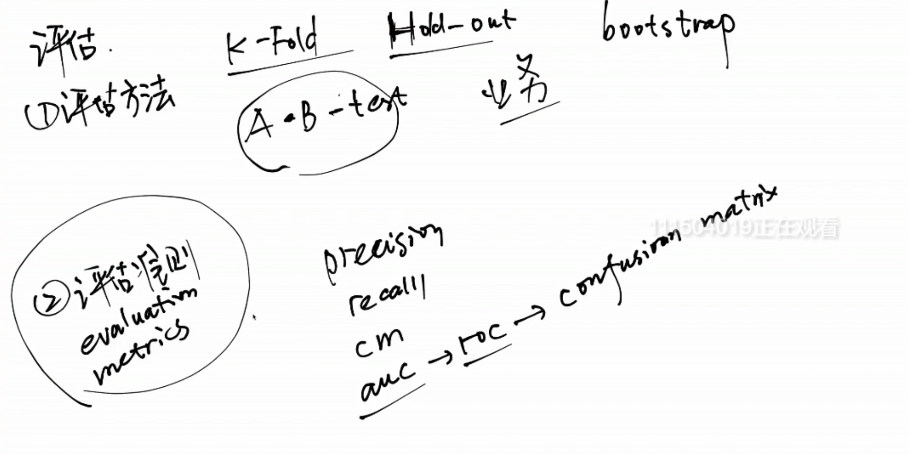 评估. K-Fold Hold-out bootstrap
①评估方法 A·B-test 业务
②评估准则
evaluation
metrics
precision
recall
cm
auc → roc → confusion matrix
111504019正在观看